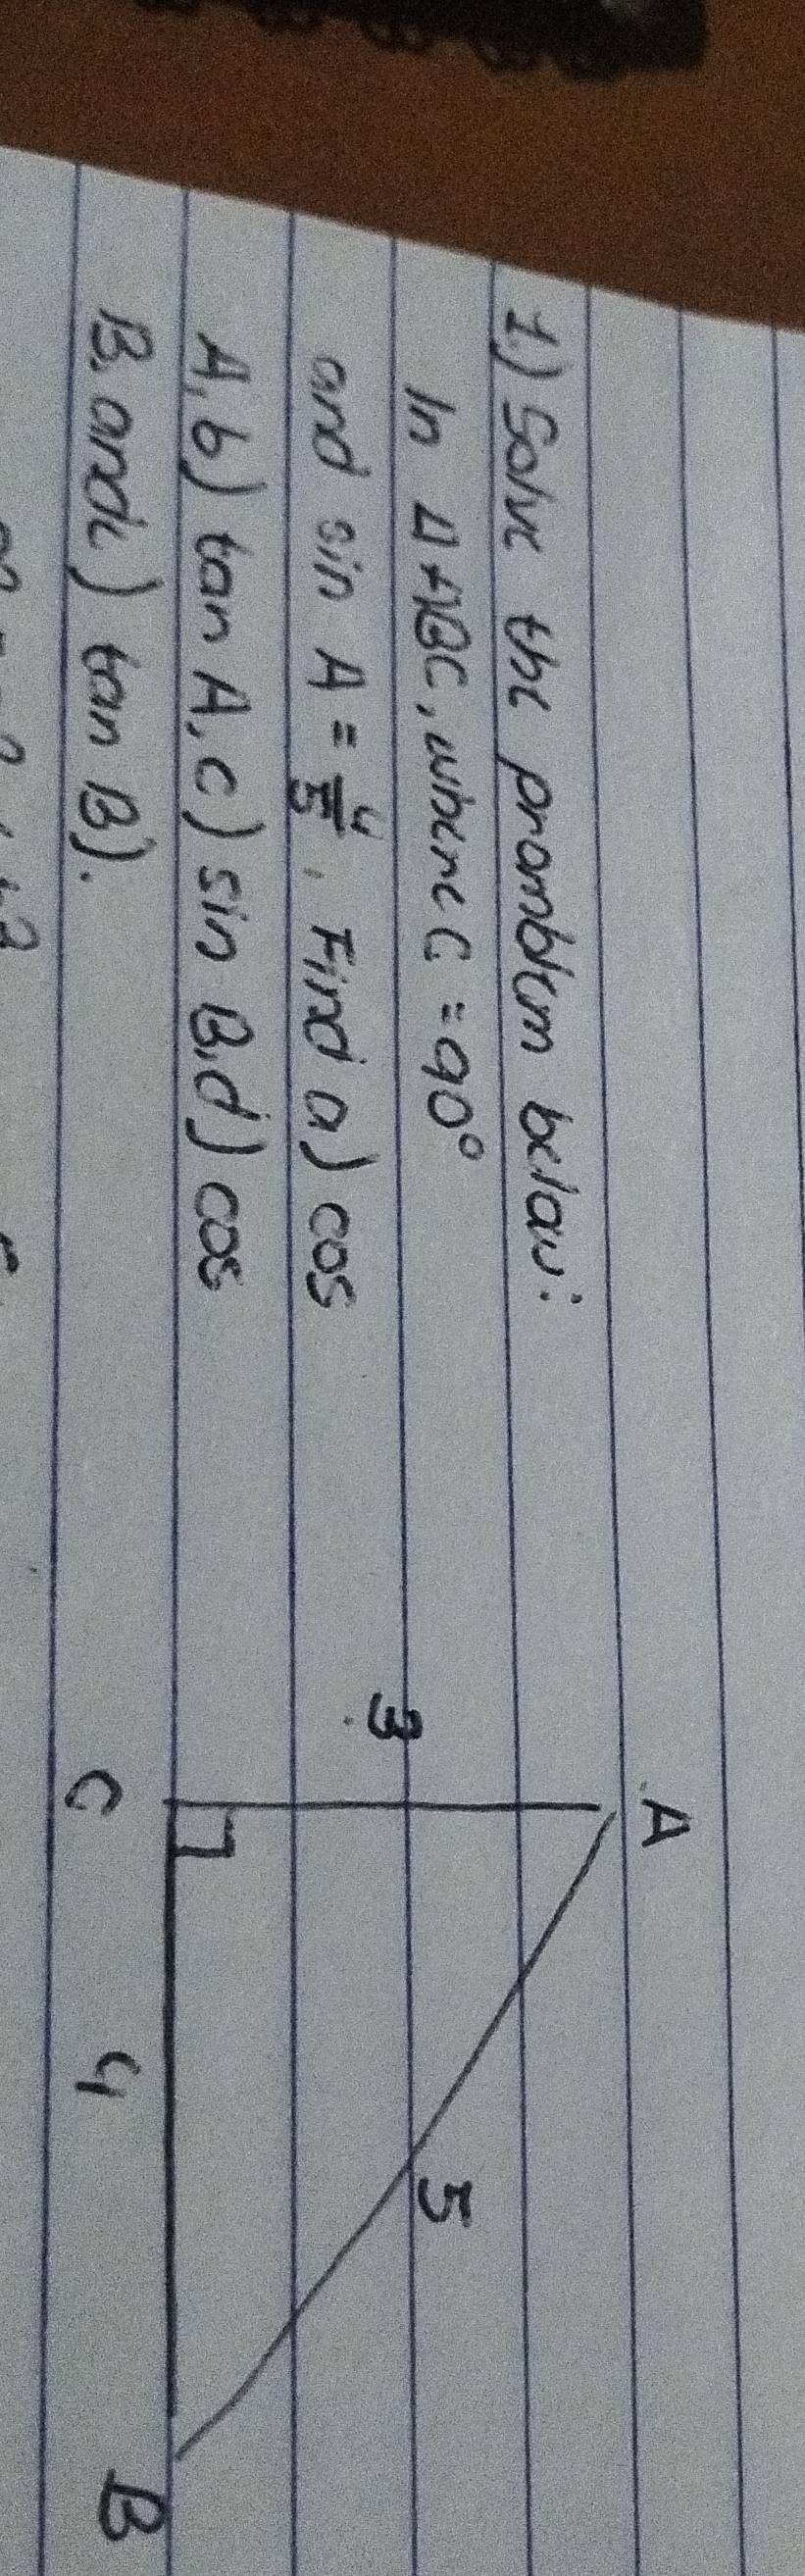 1.) Solve the promblem below:
In Δ ABC, where C = 90°
and sin A = 4/5. Find a) cos
A, b) tan A, c) sin B, d) cos
B, and e) tan B).
A
3
5
C
4
B